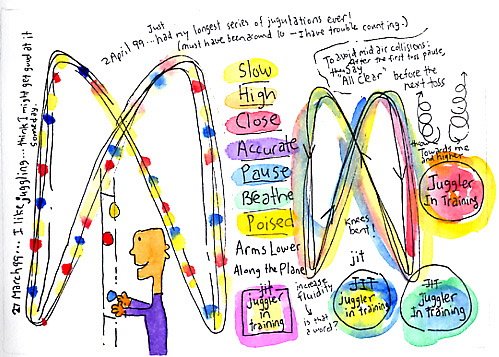 Just
2 April 99... had my longest series of jugulations ever!
(must have been around 10 - I have trouble counting.)
27 March 99... I like juggling... think I might get good at it
someday.
Slow
High
Close
Accurate
Pause
Breathe
Poised
Arms Lower
Along the Plane
To avoid mid air collisions:
After the first toss pause,
then say
"All Clear" before the
next toss
throw
Towards me
and higher
Juggler
In Training
Knees
bent!
jit
JIT
juggler
in
training
increase
fluidity
is that
a word?
JIT
Juggler
in training
JIT
Juggler
In training